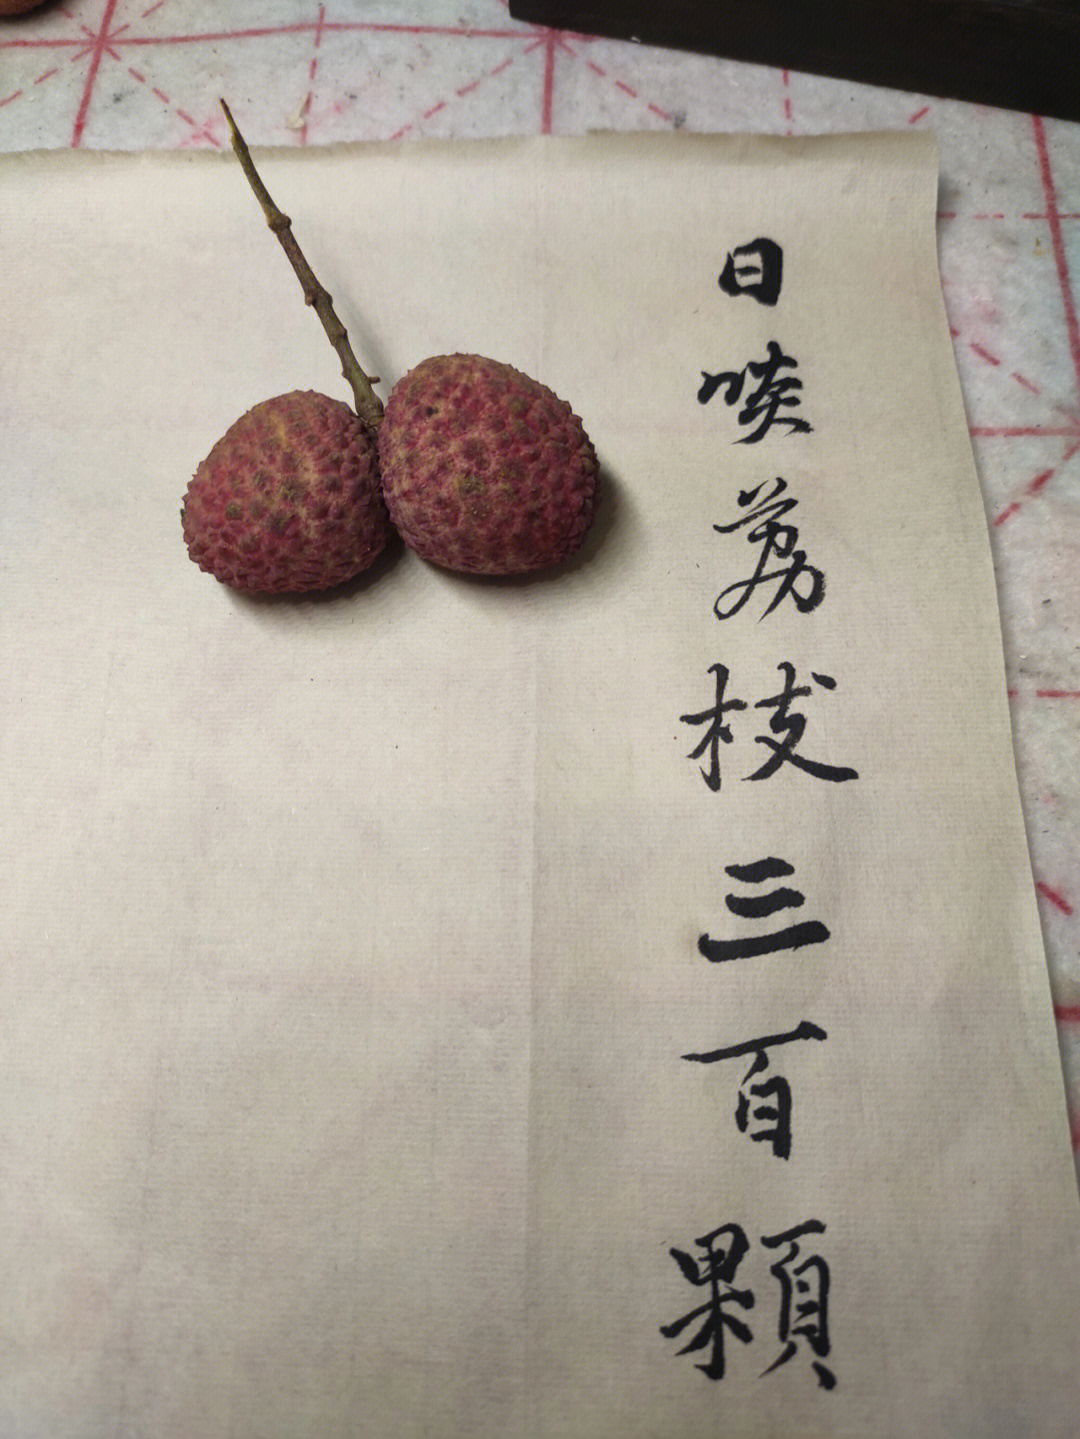 日啖荔枝三百顆